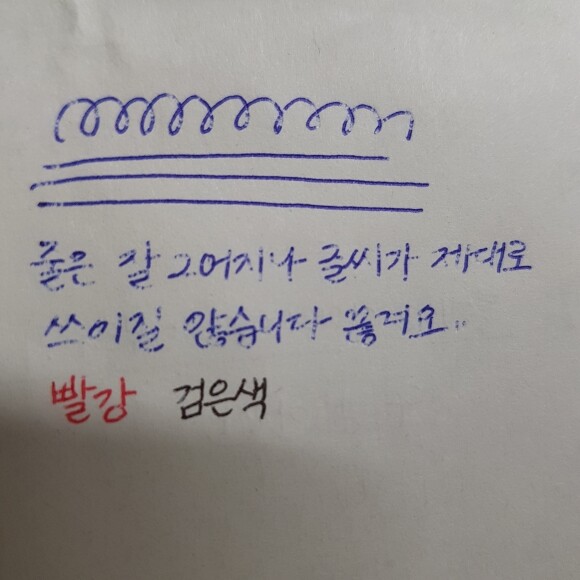 줄은 잘 그어지나 글씨가 제대로
쓰이질 않습니다
빨강 검은색